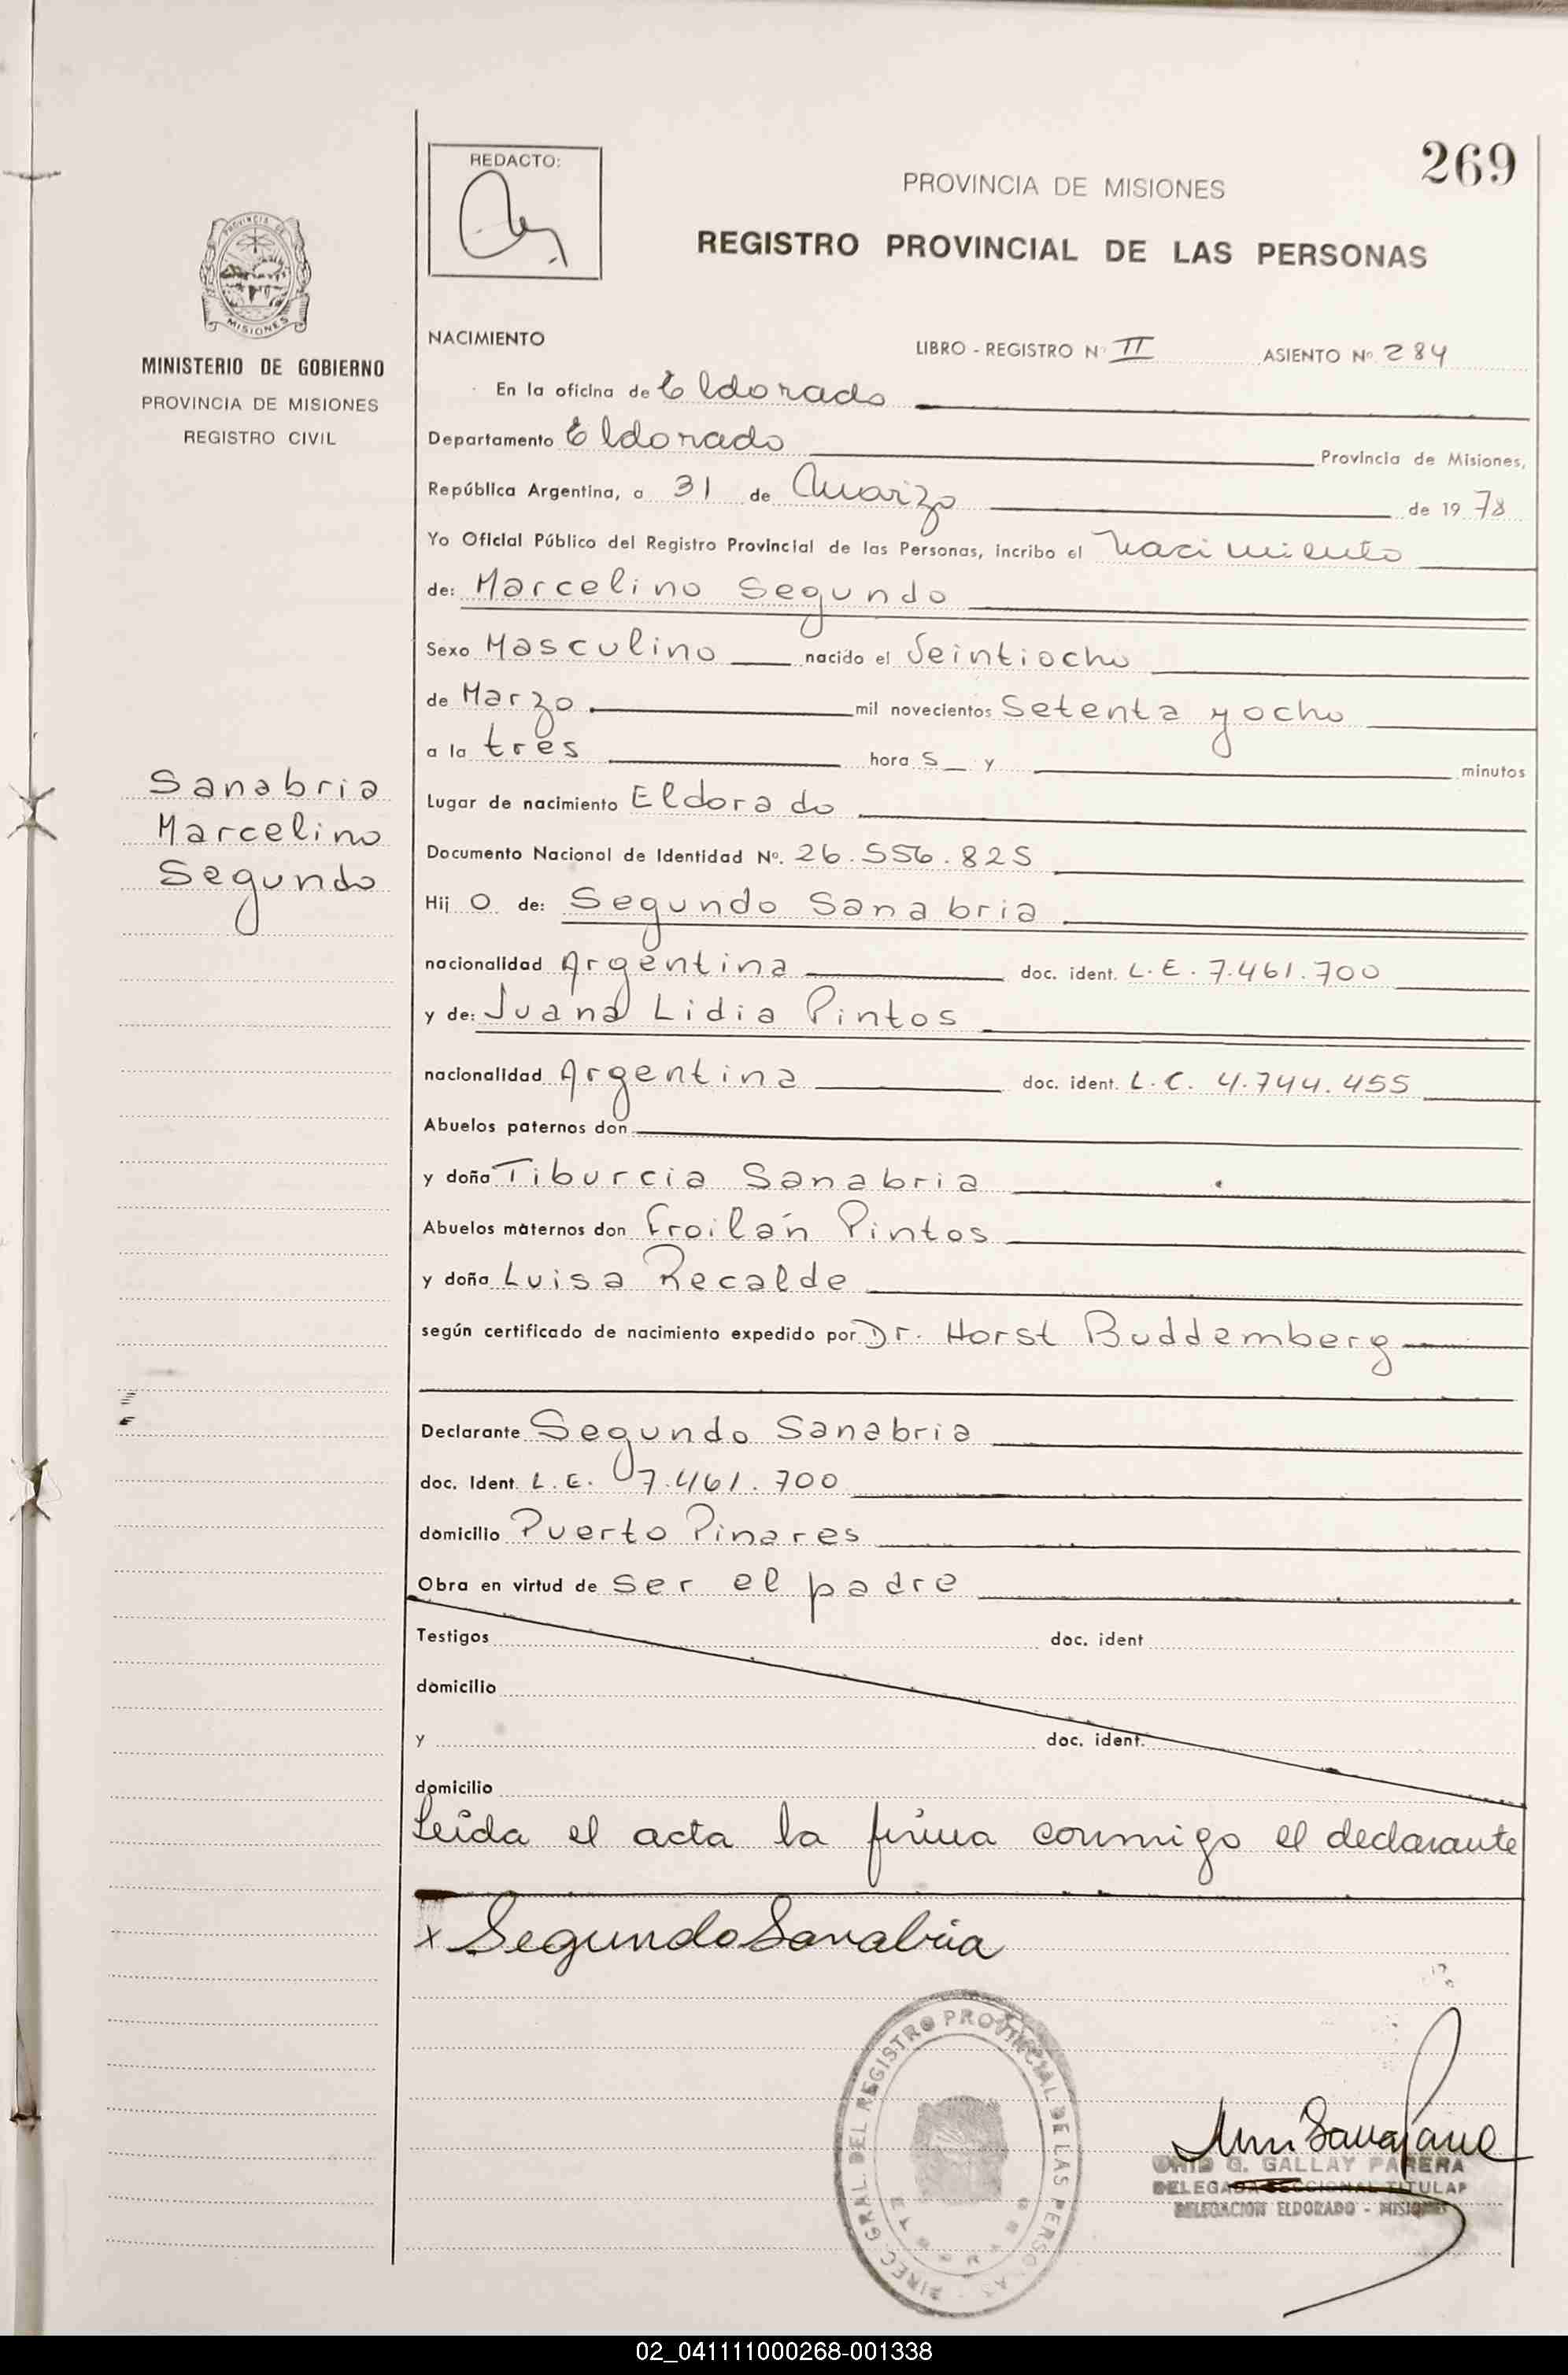 269
REDACTO:
PROVINCIA DE MISIONES
REGISTRO PROVINCIAL DE LAS PERSONAS
PROVINCIA DE
MISIONES
MINISTERIO DE GOBIERNO
PROVINCIA DE MISIONES
REGISTRO CIVIL
Sanabria
Marcelino
Segundo
NACIMIENTO
LIBRO - REGISTRO Nº II ASIENTO Nº 284
En la oficina de Eldorado
Departamento Eldorado Provincia de Misiones,
República Argentina, a 31 de Marzo de 1978
Yo Oficial Público del Registro Provincial de las Personas, incribo el nacimiento
de: Marcelino Segundo
Sexo Masculino nacido el Veintiocho
de Marzo mil novecientos Setenta y ocho
a la tres hora s y minutos
Lugar de nacimiento Eldorado
Documento Nacional de Identidad Nº. 26.556.825
Hij o de: Segundo Sanabria
nacionalidad Argentina doc. ident. L.E. 7.461.700
y de: Juana Lidia Pintos
nacionalidad Argentina doc. ident. L.C. 4.744.455
Abuelos paternos don
y doña Tiburcia Sanabria
Abuelos maternos don Froilán Pintos
y doña Luisa Recalde
según certificado de nacimiento expedido por Dr. Horst Buddemberg
Declarante Segundo Sanabria
doc. Ident. L.E. 7.461.700
domicilio Puerto Pinares
Obra en virtud de ser el padre
Testigos doc. ident
domicilio
y doc. ident.
domicilio
Leída el acta la firma conmigo el declarante
x Segundo Sanabria
DIREC. GRAL. DEL REGISTRO PROVINCIAL DE LAS PERSONAS
G. GALLAY PARERA
DELEGADA SECCIONAL TITULAR
DELEGACION ELDORADO - MISIONES
02_041111000268-001338